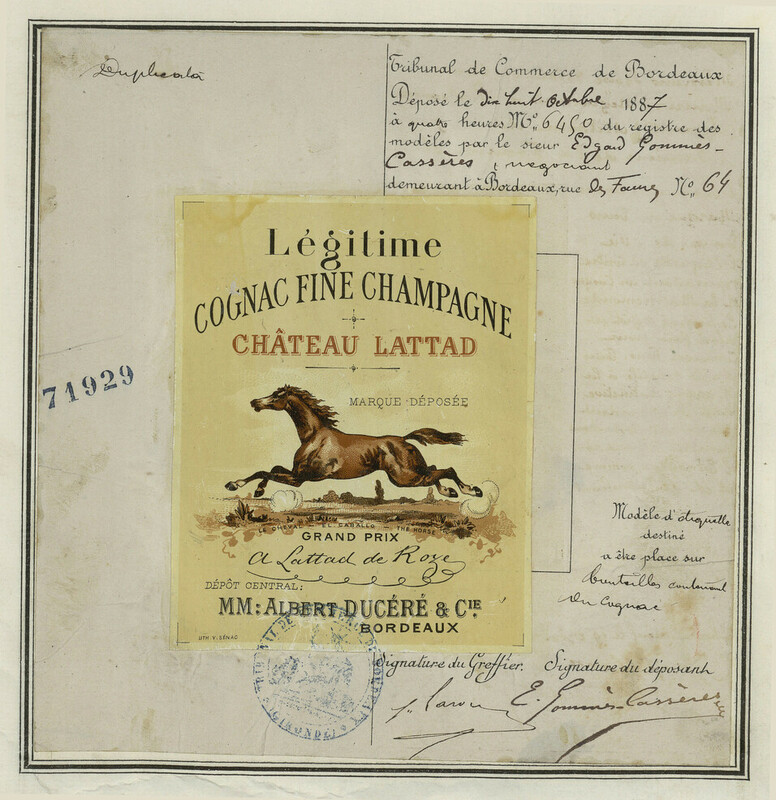 Duplicata
Tribunal de Commerce de Bordeaux
Déposé le dix huit Octobre 1887
à quatre heures No. 6450 du registre des
modèles par le sieur Edgard Gommès-
Cassères, négociant
demeurant à Bordeaux, rue des Faures No. 64
Légitime
COGNAC FINE CHAMPAGNE
CHÂTEAU LATTAD
71929
MARQUE DÉPOSÉE
LE CHEVAL - EL CABALLO - THE HORSE
GRAND PRIX
A Lattad de Roze
DÉPÔT CENTRAL:
MM: ALBERT DUCÉRÉ & CIE
BORDEAUX
LITH. V. SÉNAC
Modèle d'étiquette
destiné
a être place sur
bouteilles contenant
du Cognac
TRIBUNAL DE COMMERCE DE BORDEAUX
(GIRONDE)
Signature du Greffier. Signature du déposant
E. Gommès-Cassères